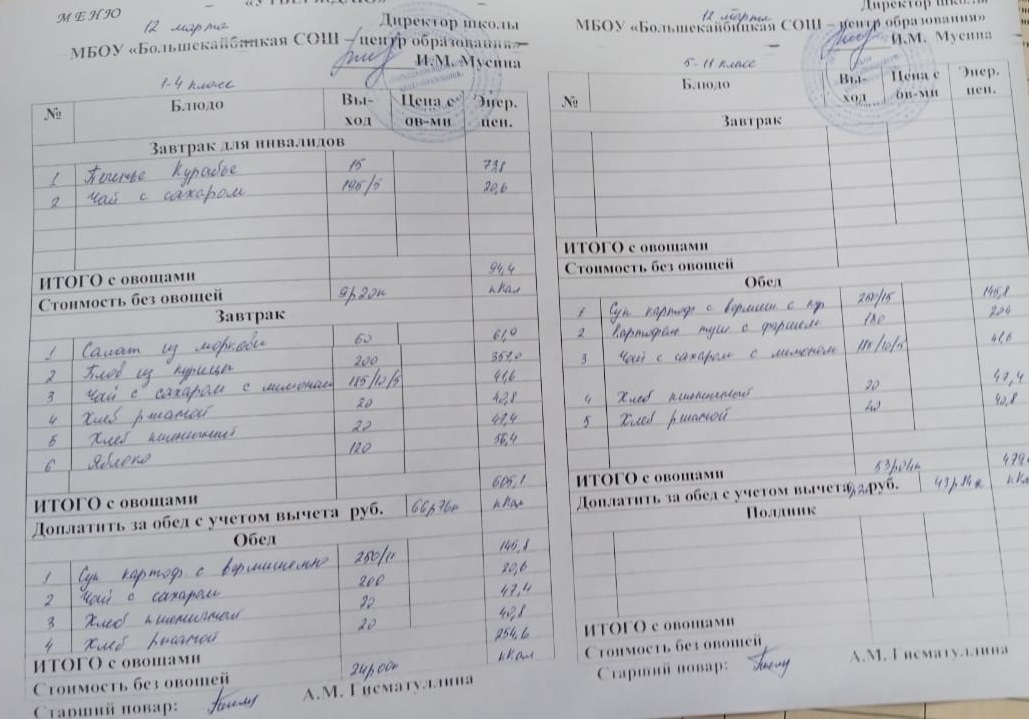 МЕНЮ
«УТВЕРЖДАЮ»
12 марта
Директор школы
МБОУ «Большекайбицкая СОШ – центр образования»
И.М. Мусина
1-4 класс
№ Блюдо Вы-ход Цена с ов-ми Энер. цен.
Завтрак для инвалидов
1 Печенье Курабье 15 73,8
2 Чай с сахаром 195/5 20,6
ИТОГО с овощами 94,4
Стоимость без овощей 9р20к кКал
Завтрак
1 Салат из моркови 60 61,9
2 Плов из курицы 200
3 Чай с сахаром с лимоном 185/10/5 41,6
4 Хлеб ржаной 20 40,8
5 Хлеб пшеничный 20 47,4
6 Яблоко 120 56,4
ИТОГО с овощами 605,1
Доплатить за обед с учетом вычета руб. 66р76к кКал
Обед
1 Суп картоф. с вермишелью 145,8
2 Чай с сахаром 200 20,6
3 Хлеб пшеничный 20 47,4
4 Хлеб ржаной 20 40,8
ИТОГО с овощами 254,6
Стоимость без овощей 24р00к кКал
Старший повар: А.М. Гисматуллина
12 марта
Директор школы
МБОУ «Большекайбицкая СОШ – центр образования»
И.М. Мусина
5-11 класс
№ Блюдо Вы-ход Цена с ов-ми Энер. цен.
Завтрак
ИТОГО с овощами
Стоимость без овощей
Обед
1 Суп картоф с вермиш с 250/15 145,8
2 Картофель туш с фаршем 180 204
3 Чай с сахаром с лимоном 185/10/5 41,6
4 Хлеб пшеничный 20 47,4
5 Хлеб ржаной 20 40,8
ИТОГО с овощами 53р04к
Доплатить за обед с учетом вычета руб. 43р84к кКал
Полдник
ИТОГО с овощами
Стоимость без овощей
Старший повар: А.М. Гисматуллина